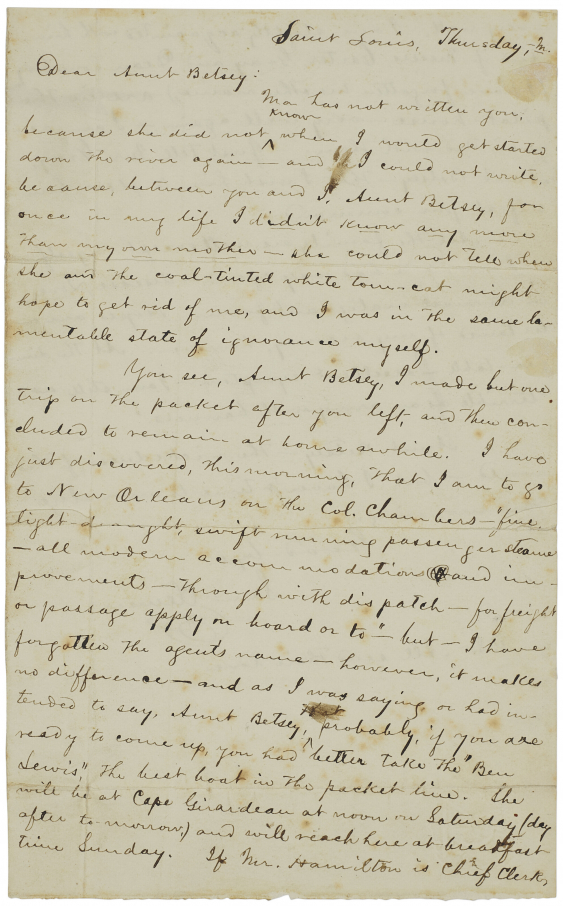 Saint Louis, Thursday, M.
Dear Aunt Betsey:
Ma has not written you,
know
because she did not ^ when I would get started
down the river again — and I could not write,
because, between you and I, Aunt Betsey, for
once in my life I didn't know any more
than my own mother — she could not tell when
she and the coal-tinted white tom-cat might
hope to get rid of me, and I was in the same la-
mentable state of ignorance myself.
You see, Aunt Betsey, I made but one
trip on the packet after you left, and then con-
cluded to remain at home awhile. I have
just discovered, this morning, that I am to go
to New Orleans on the Col. Chambers — "fine,
light-draught, swift running passenger steamer
— all modern accommodations and im-
provements — through with dispatch — for freight
or passage apply on board or to" — but — I have
forgotten the agent's name — however, it makes
no difference — and as I was saying, or had in-
tended to say, Aunt Betsey, probably, if you are
ready to come up, you had ^ better take the "Ben
Lewis," the best boat in the packet line. She
will be at Cape Girardeau at noon on Saturday (day
after to-morrow,) and will reach here at breakfast
time Sunday. If Mr. Hamilton is Chief Clerk,